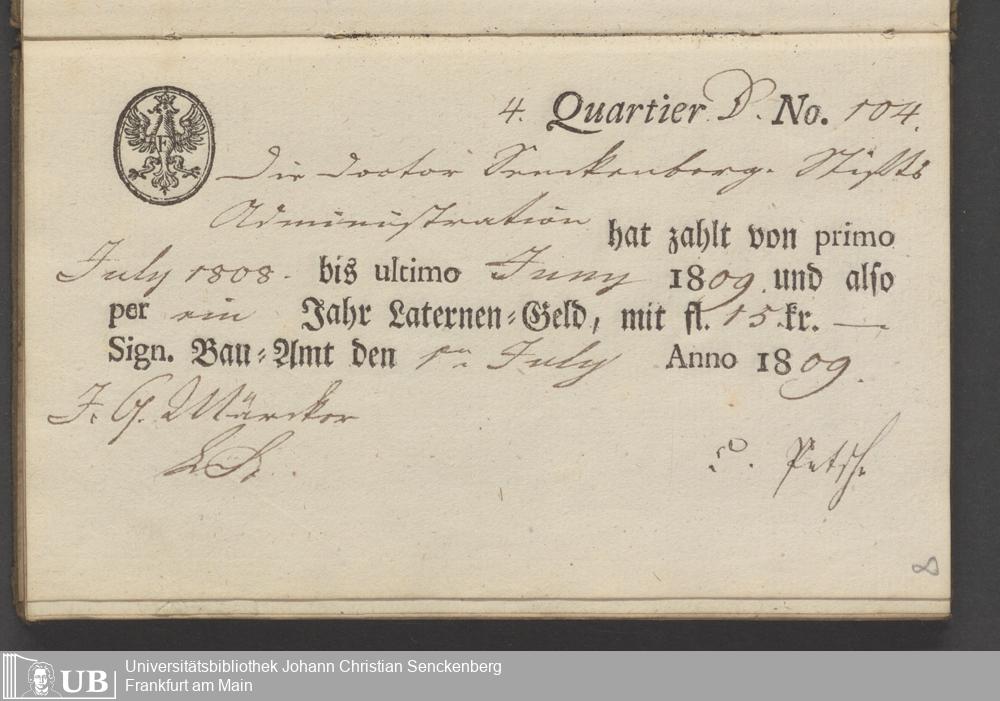 4. Quartier D. No. 104.
F
Die Doctor Senckenberg. Stifts
Administration hat zahlt von primo
July 1808. bis ultimo Juny 1809 und also
per ein Jahr Laternen-Geld, mit fl. 15 kr. —
Sign. Bau-Amt den 1n July Anno 1809.
J. G. Märcker
C. Petsch
8
UB
Universitätsbibliothek Johann Christian Senckenberg
Frankfurt am Main